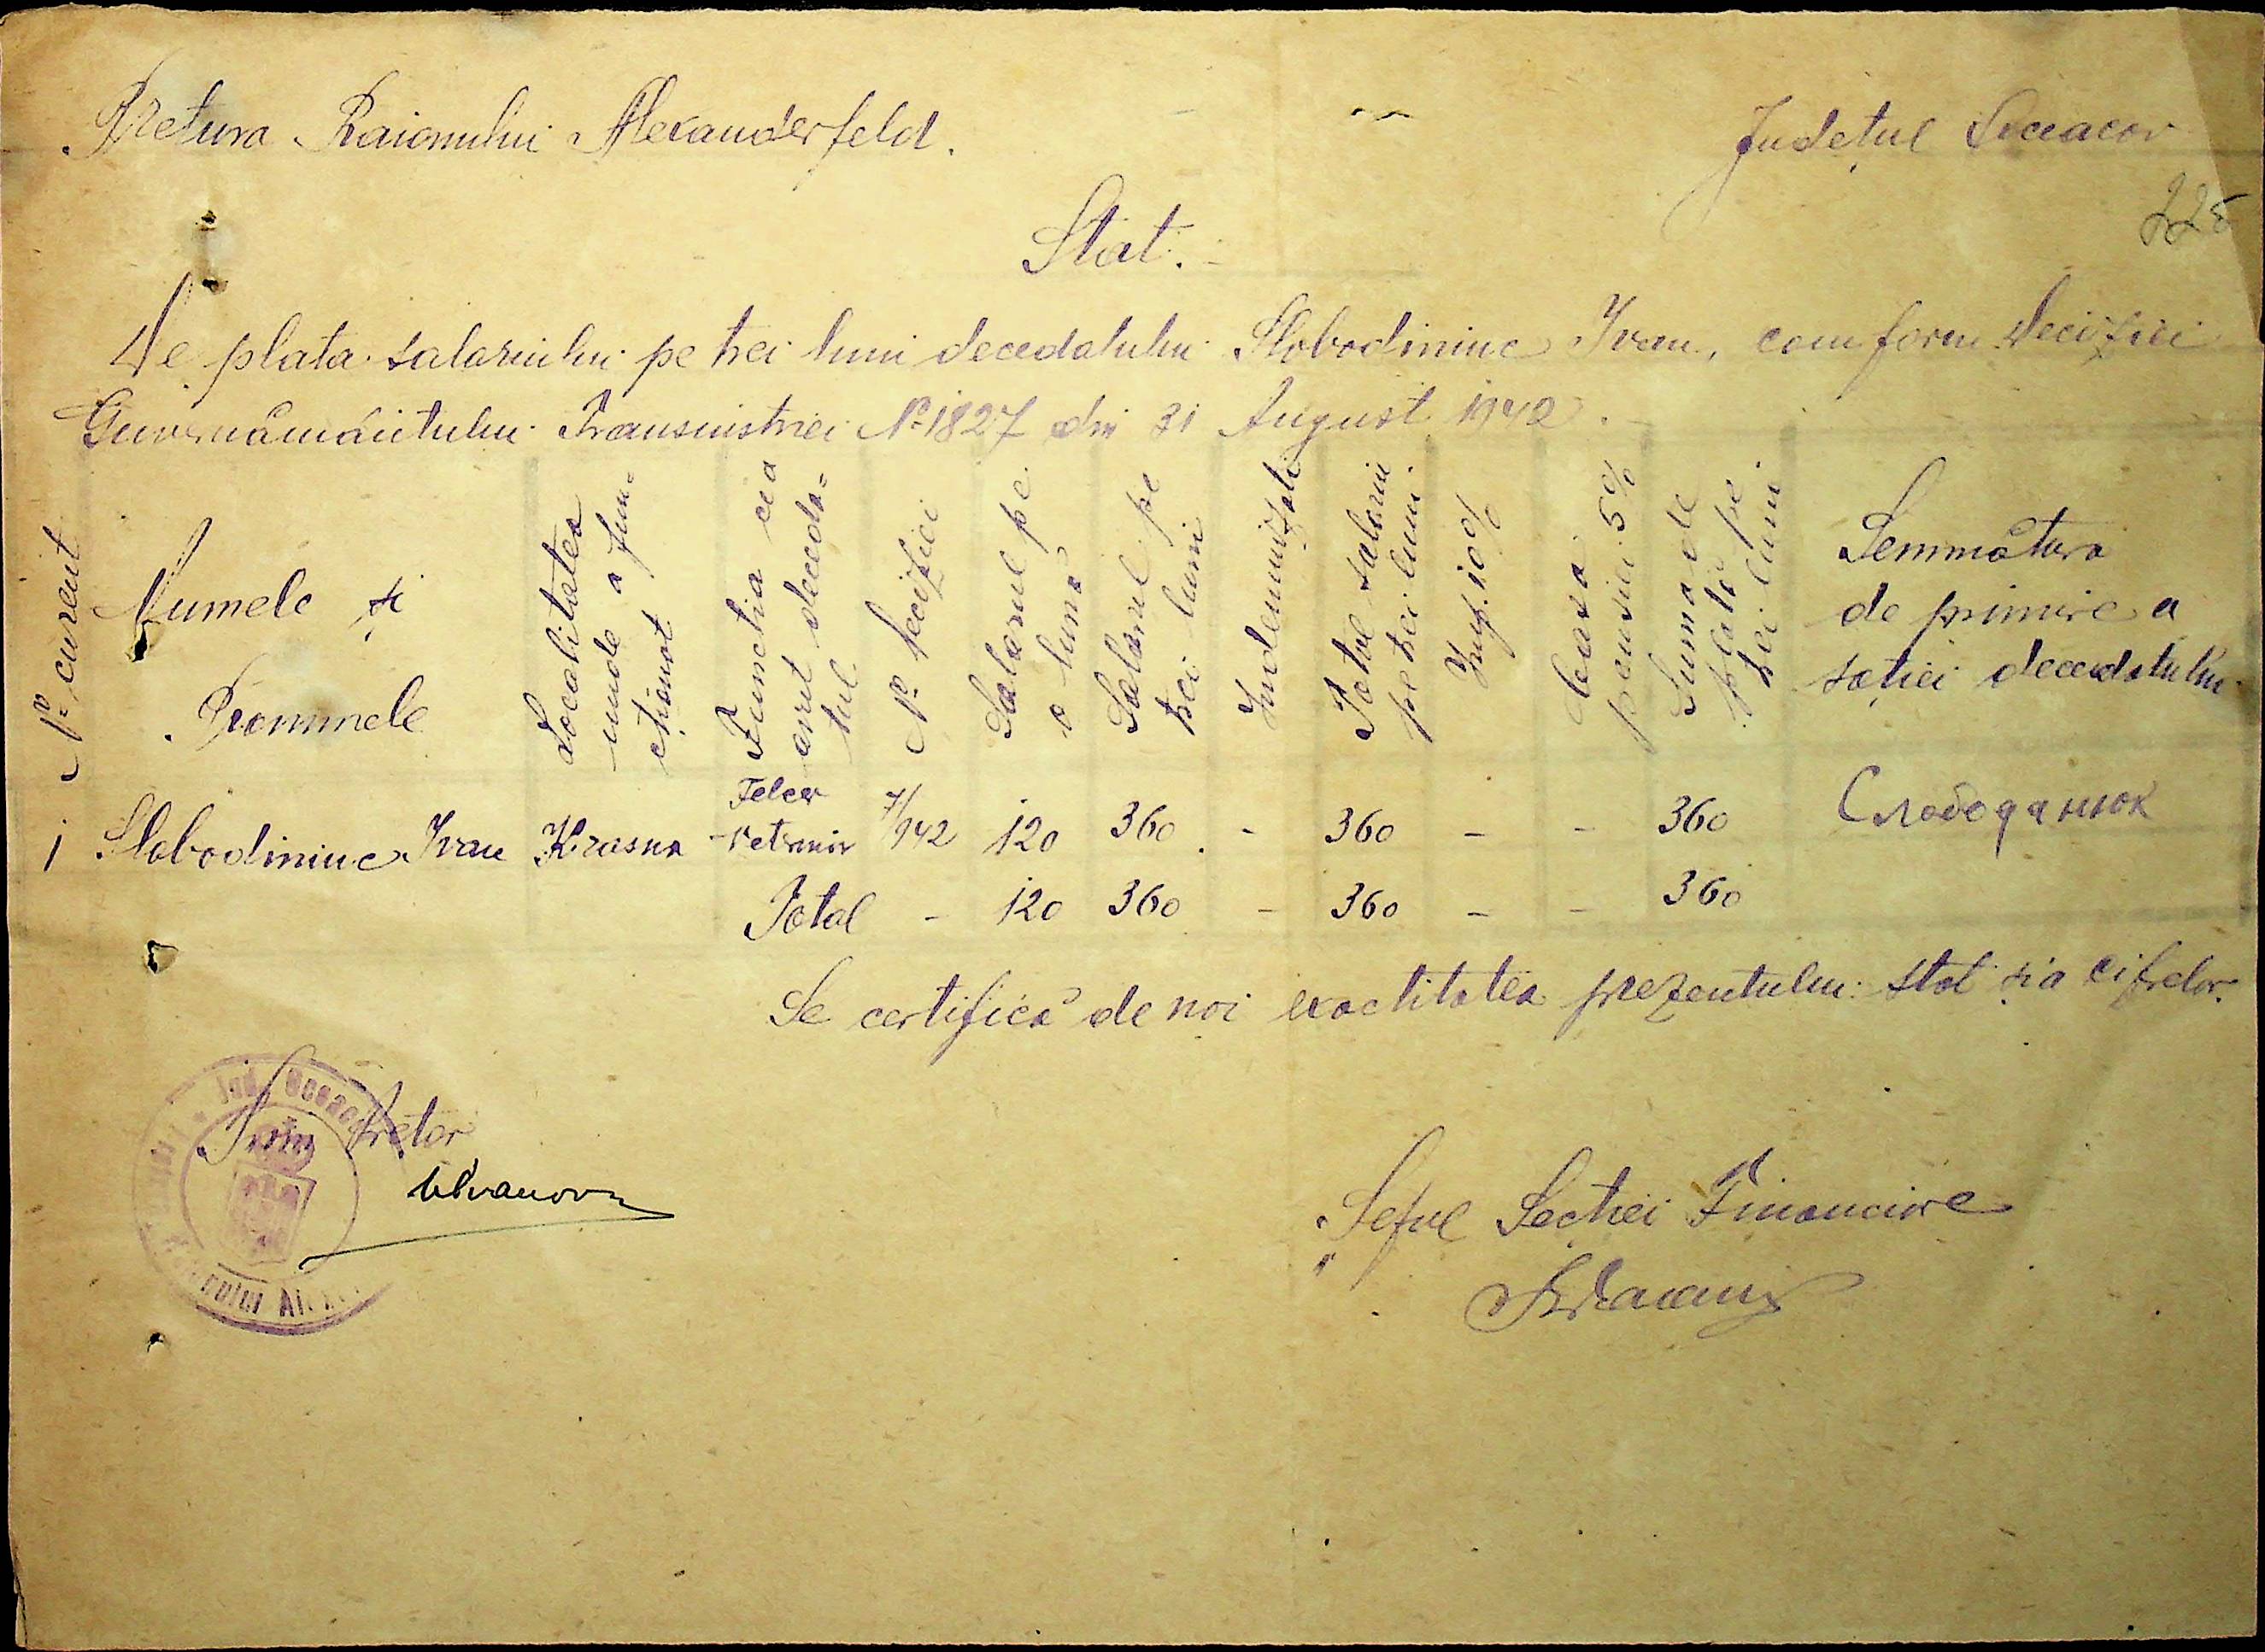 Pretura Raionului Alexanderfeld.
Județul Oceacov
225
Stat.
De plata salariului pe trei luni decedatului Slobodiniuc Ivan, comform deciziei
Guvernământului Transnistriei No 1827 din 31 August 1942.
No curent
Numele și
Pronumele
Localitatea
unde a fun=
cționat
Funcția cea
avut deceda=
tul
No deciziei
Salarul pe
o lună
Salarul pe
trei luni
Indemnizații
Total salarii
pe trei luni.
Imp. 10%
Casa
pensiei 5%
Suma de
plată pe
trei luni
Semnătura
de primire a
soției decedatului
1 Slobodiniuc Ivan Krasna Felcer Vetrinir 7/942 120 360. - 360 - - 360 Слободянюк
Total - 120 360 - 360 - - 360
Se certifică de noi exactitatea prezentului stat și a cifrelor.
Prim Pretor
Ivanov
Șeful Secției Financiare
Jud. Oceacov